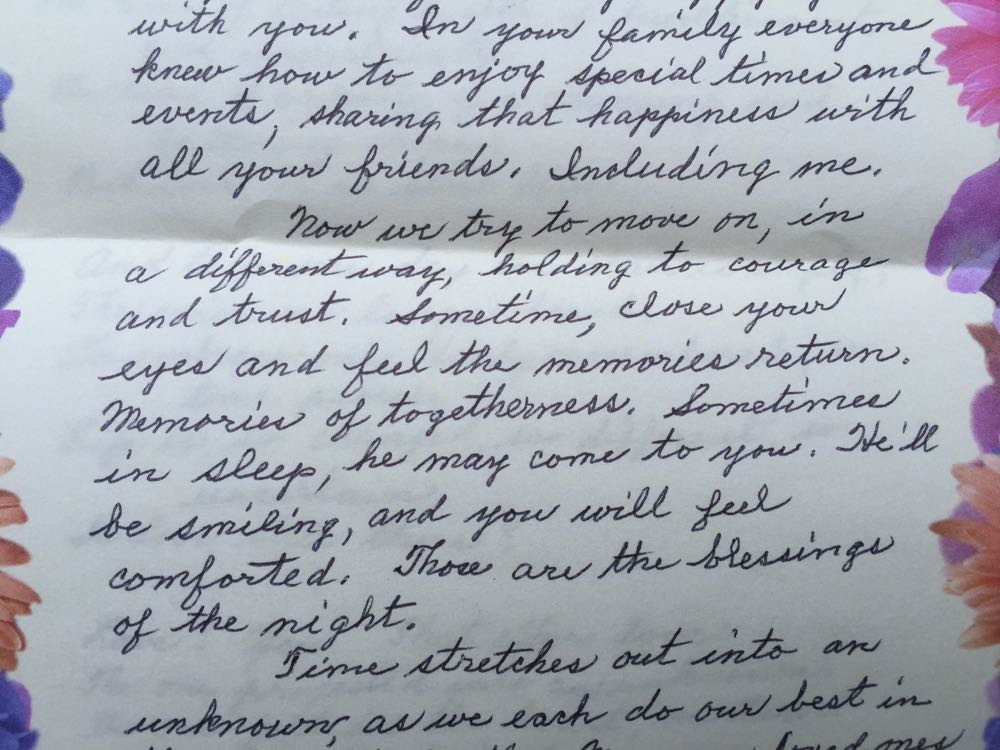 with you. In your family everyone
knew how to enjoy special times and
events, sharing that happiness with
all your friends. Including me.
Now we try to move on, in
a different way, holding to courage
and trust. Sometime, close your
eyes and feel the memories return.
Memories of togetherness. Sometimes
in sleep, he may come to you. He'll
be smiling, and you will feel
comforted. Those are the blessings
of the night.
Time stretches out into an
unknown, as we each do our best in
loved ones